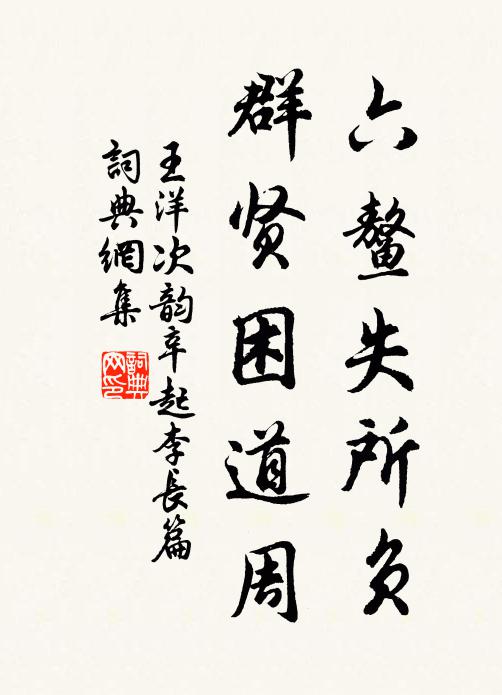 六鳌失所负
群贤困道周
王洋次韵辛起李长篇
詞典網集
詞典
网印